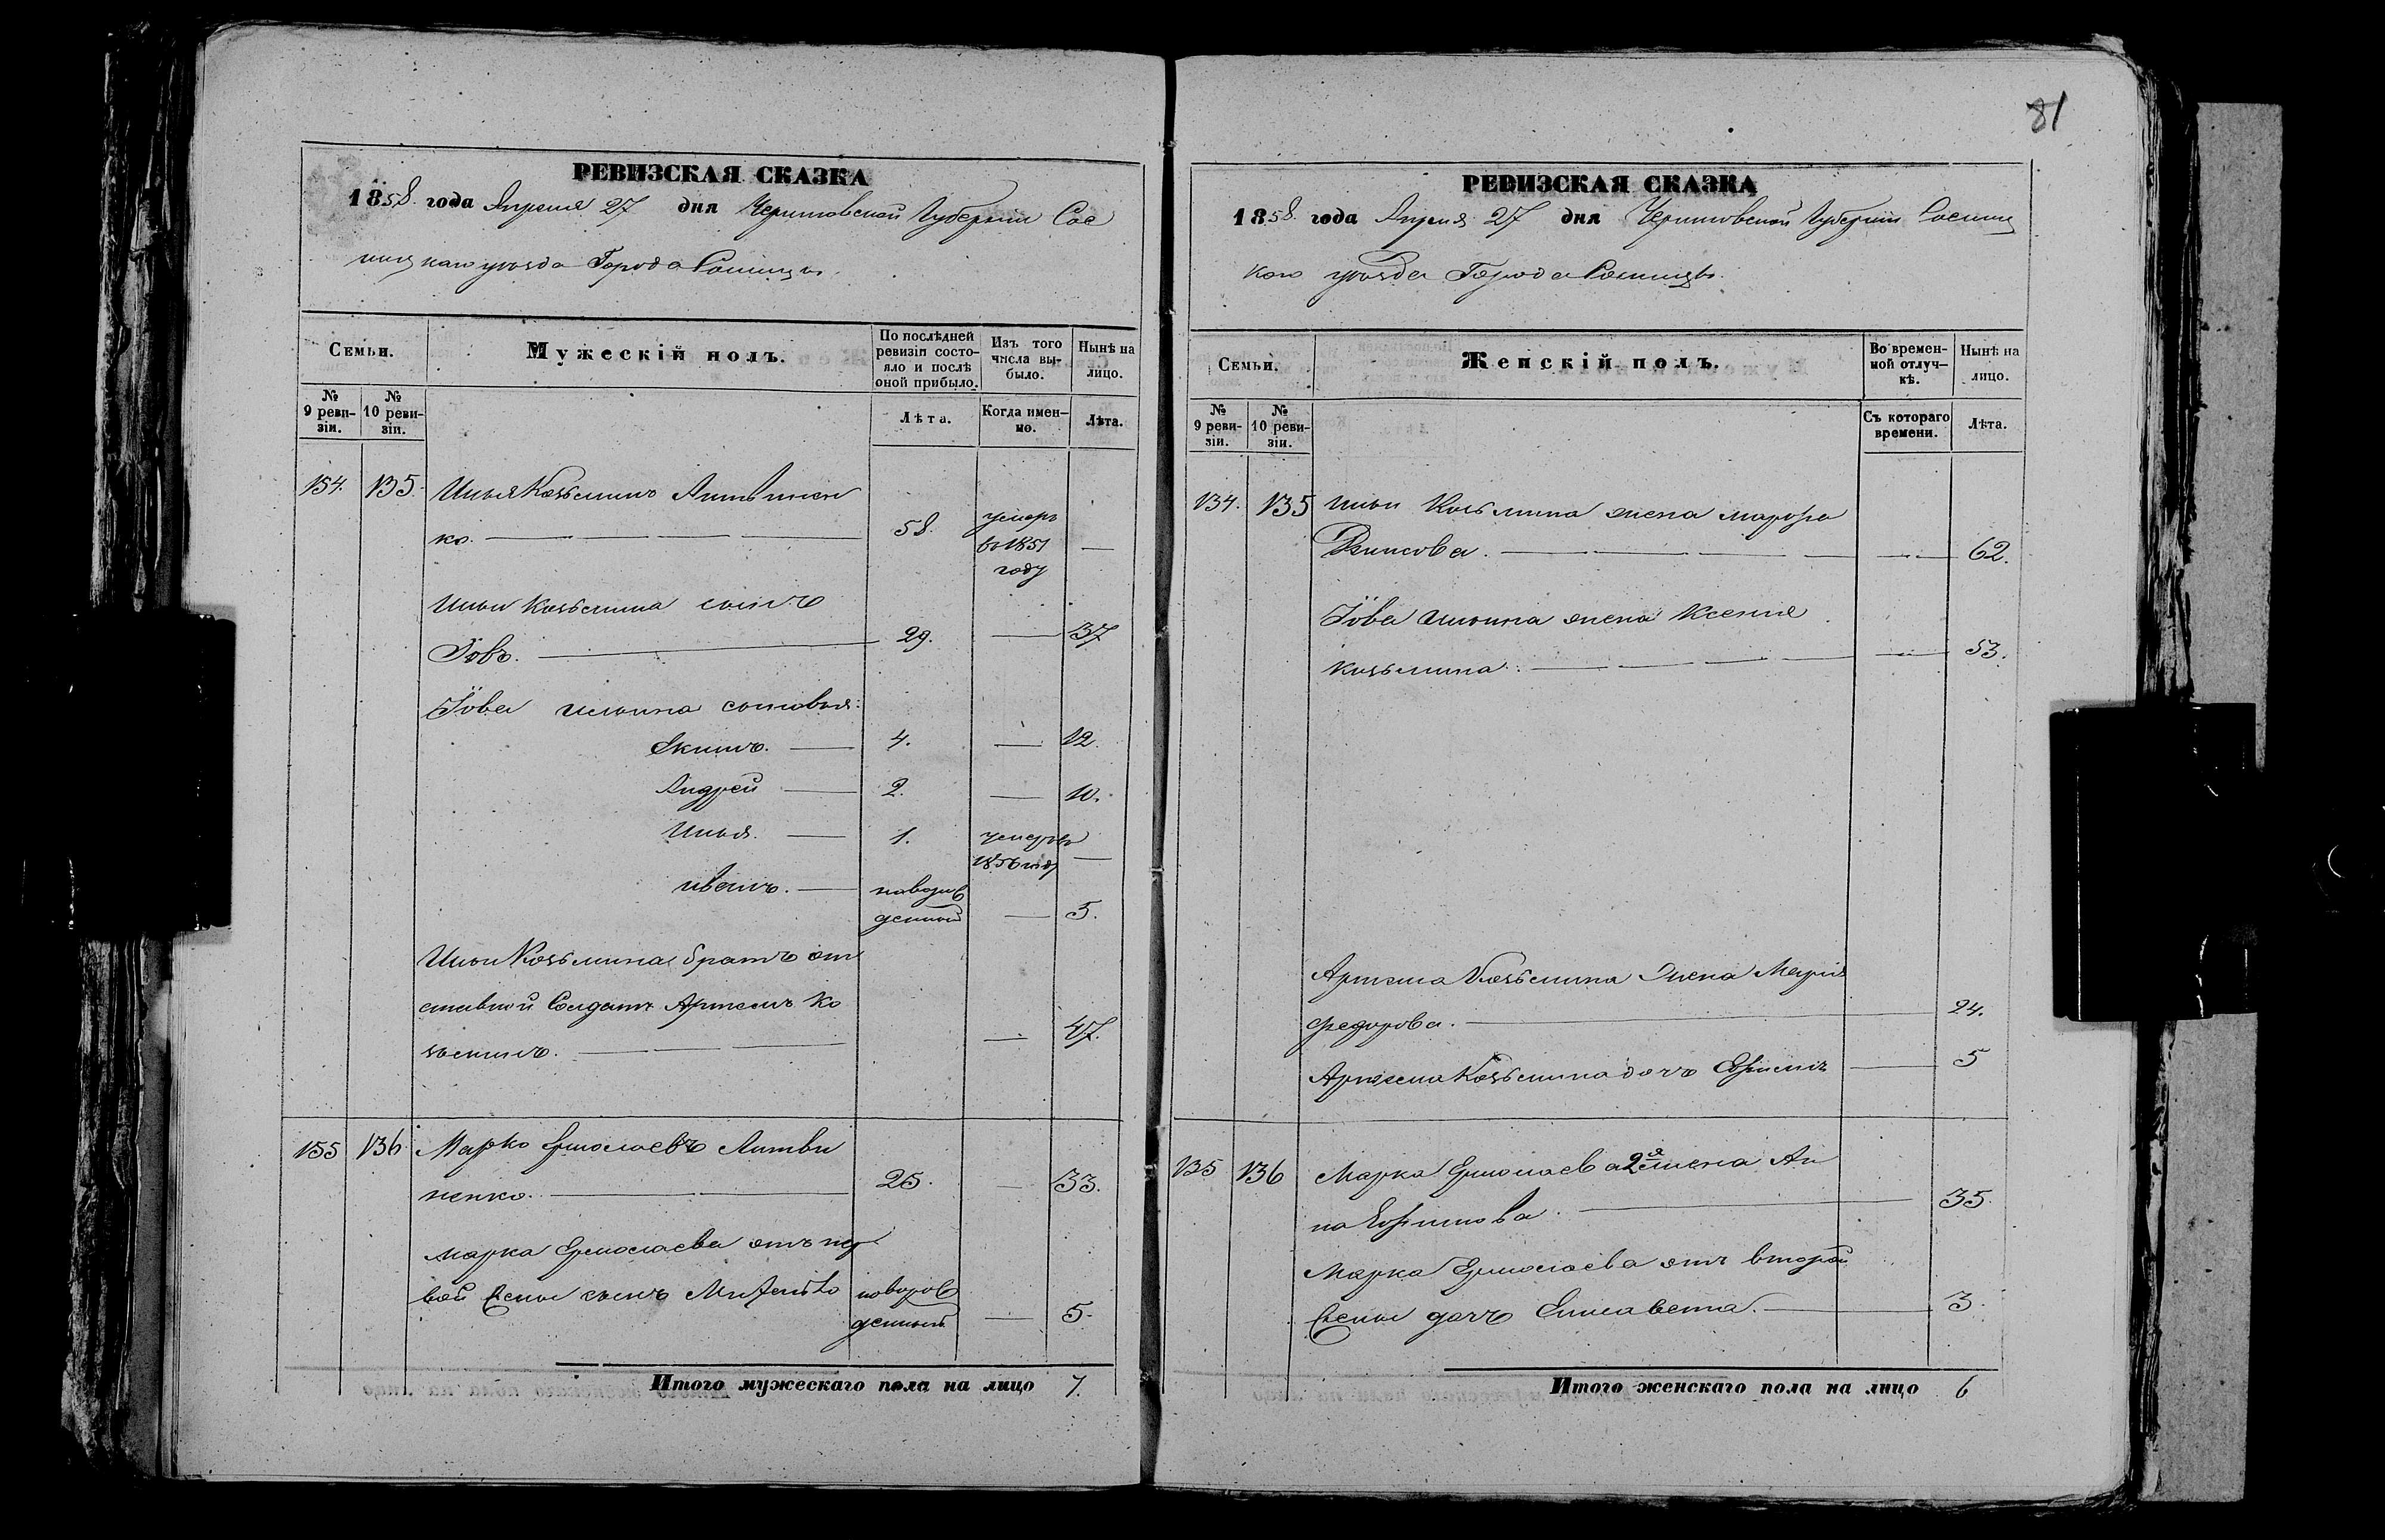 81
РЕВИЗСКАЯ СКАЗКА
1858 года Апреля 27 дня Черниговской Губернии Сос
ницкаго уѣзда Города Сосницы.
Семьи.
Мужескій полъ.
По послѣдней ревизіи состояло и послѣ оной прибыло.
Изъ того числа выбыло.
Нынѣ на лицо.
№ 9 ревизіи.
№ 10 ревизіи.
Лѣта.
Когда именно.
Лѣта.
154. 135. Илья Козьминъ
ко. 58. умеръ
въ 1851
году
Ильи Козьмина сынъ
Іовъ. 29. 37
Іова Ильина сыновья:
Екимъ. 4. 12.
Андрей 2. 10.
Илья. 1. умеръ въ
1856 году
Иванъ. новорож
денный 5.
Ильи Козьмина братъ от
ставной Солдатъ Артемъ Ко
зьминъ. 47.
155 136 Марко Ермолаевъ Литви
ненко. 25. 33.
Марка Ермолаева отъ пер
вой жены сынъ новорож
денный 5.
Итого мужескаго пола на лицо 7.
РЕВИЗСКАЯ СКАЗКА
1858 года Апреля 27 дня Черниговской Губернии Сосниц
кого уѣзда Города Сосницы.
Семьи.
Женскій полъ.
Во временной отлучкѣ.
Нынѣ на лицо.
№ 9 ревизіи.
№ 10 ревизіи.
Съ котораго времени.
Лѣта.
134. 135 Ильи Козьмина жена Марфа
62.
Іова Ильина жена Ксения
Козьмина. 53.
Артема Козьмина жена Мария
Федорова. 24.
Артема Козьмина дочь 5
135 136 Марка Ермолаева 2я жена Ан
на Ефимова. 35.
Марка Ермолаева отъ второй
жены дочь Елисавета. 3.
Итого женскаго пола на лицо 6